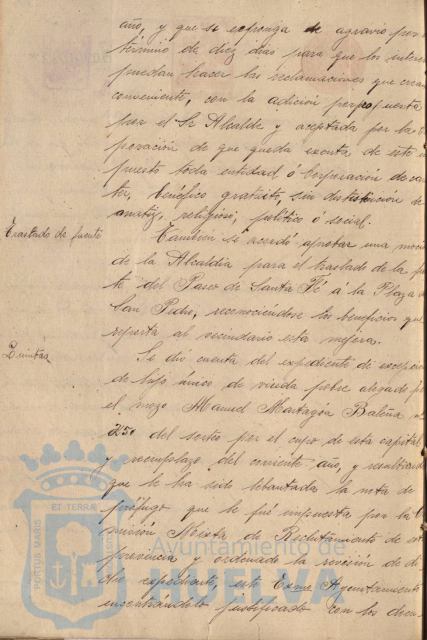 año, y que se exponga de agravio por
término de diez dias para que los intere
puedan hacer las reclamaciones que crean
conveniente, con la adición propuesta
por el Sr Alcalde y aceptada por la
poración de que queda exenta de este im
puesto toda entidad ó Corporación de carac
ter, benéfico gratuito, sin distinción de
matiz, religioso, político ó social.
Traslado de fuente
También se acordó aprobar una moció
de la Alcaldía para el traslado de la fuen
te del Paseo de Santa Fé á la Plaza de
San Pedro, reconociéndose los beneficios que
reporta al vecindario esta mejora.
Quintas
Se dió cuenta del expediente de excepción
de hijo único de viuda pobre alegado por
el mozo Manuel Martagón Baleña
250 del sorteo por el cupo de esta capital
y reemplazo del corriente año, y resultando
que le ha sido lebantada la nota de
prófugo que le fué impuesta por la Co
misión Mixta de Reclutamiento de esta
provincia y ordenado la revisión de di
cho expediente, este Excmo Ayuntamiento
encontrándolo justificado con los docu
PORTUS MARIS ET TERRAE
Ayuntamiento de
HUELVA